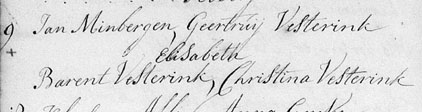 9 Jan Minbergen Geertruy Vesterink
+
& Elisabeth
Barent Vesterink, Christina Vesterink